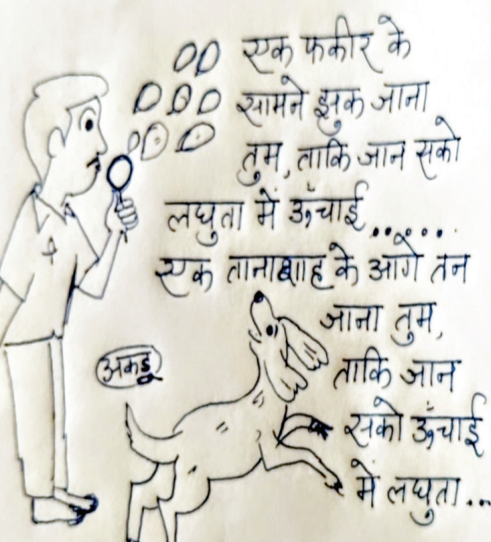 एक फकीर के
सामने झुक जाना
तुम, ताकि जान सको
लघुता में ऊँचाई......
एक तानाशाह के आगे तन
जाना तुम,
ताकि जान
सको ऊँचाई
में लघुता...
अकडू